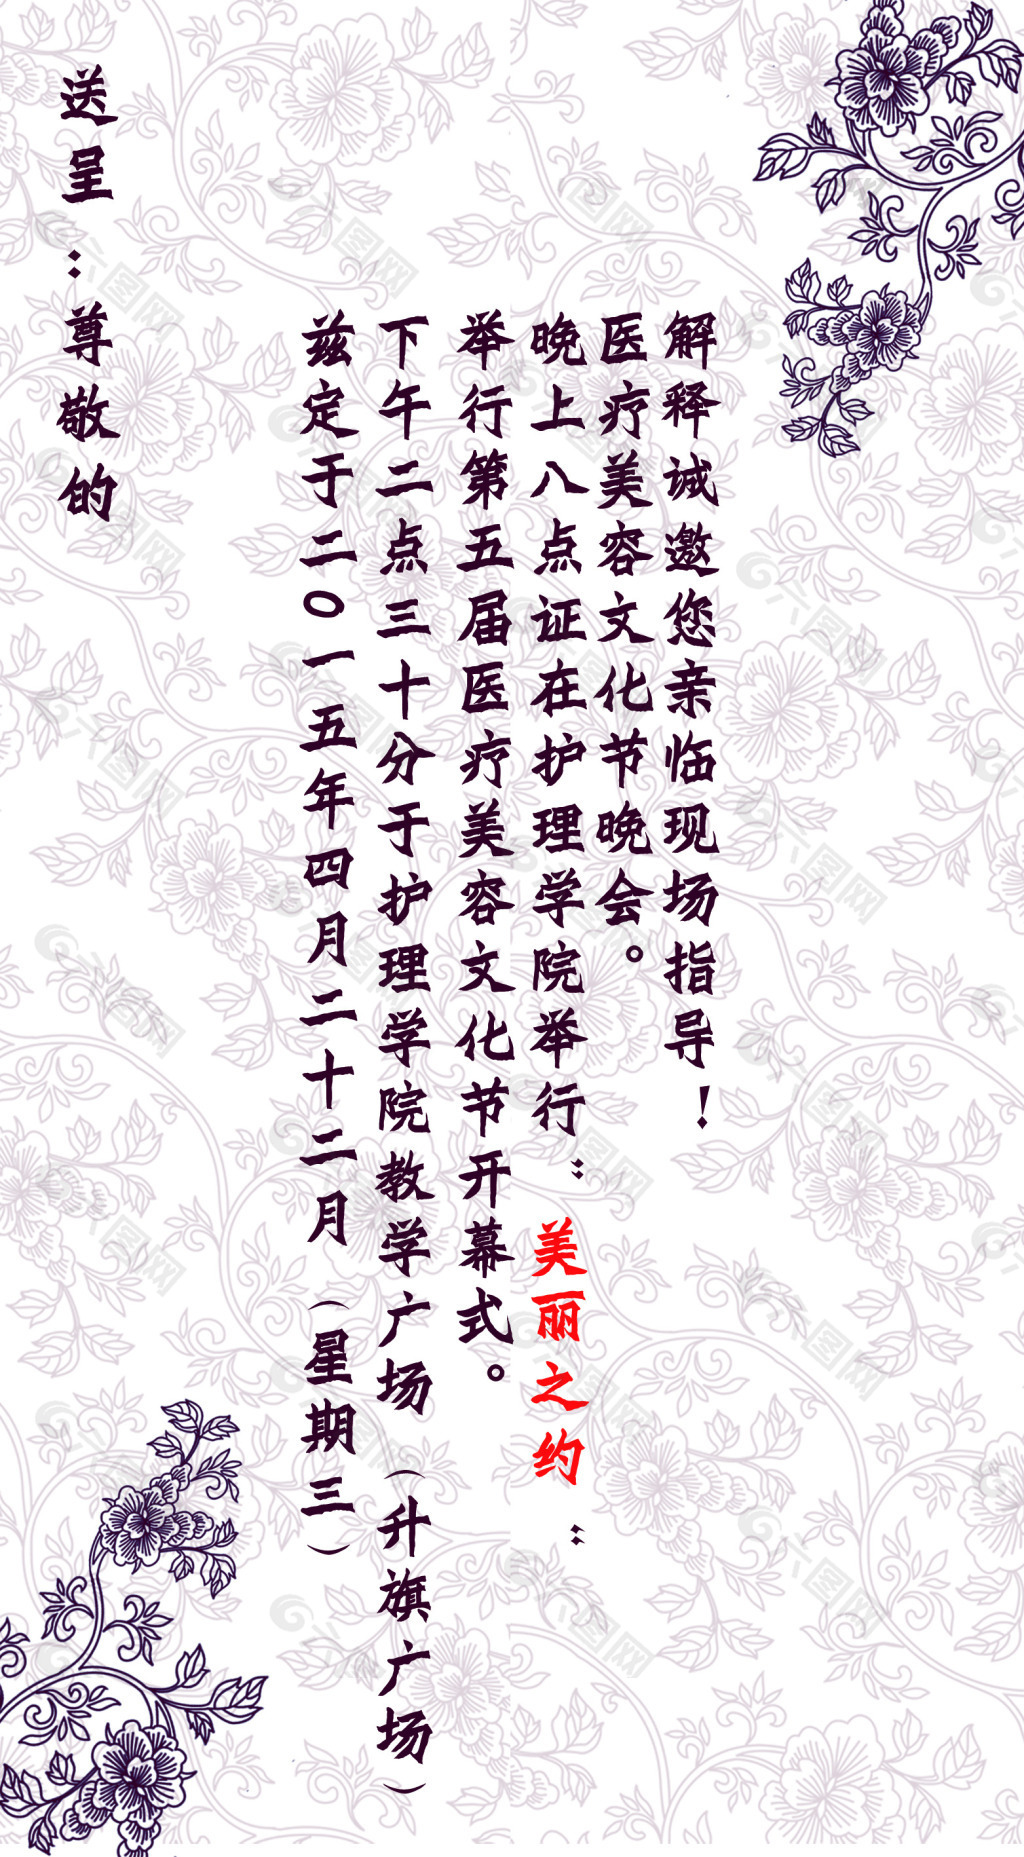 送呈：尊敬的
兹定于二〇一五年四月二十二月（星期三）
下午二点三十分于护理学院教学广场（升旗广场）
举行第五届医疗美容文化节开幕式。
晚上八点证在护理学院举行：美丽之约：
医疗美容文化节晚会。
解释诚邀您亲临现场指导！